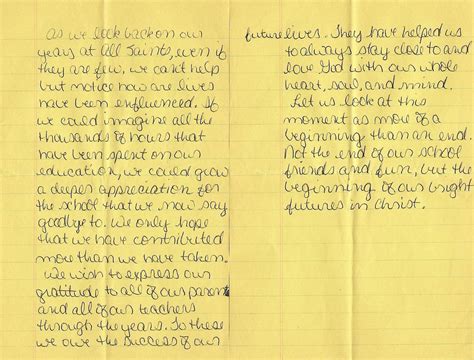 As we look back on our
years at All Saints, even if
they are few, we can't help
but notice how are lives
have been enfluenced. If
we could imagine all the
thousands of hours that
have been spent on our
education, we could grow
a deeper appreciation for
the school that we now say
goodbye to. We only hope
that we have contributed
more than we have taken.
We wish to express our
gratitude to all of our parent
and all of our teachers
through the years. To these
we owe the success of our
future lives. They have helped us
to always stay close to and
love God with our whole
heart, soul, and mind.
Let us look at this
moment as more of a
beginning than an end.
Not the end of our school
friends and fun, but the
beginning of our bright
futures in Christ.